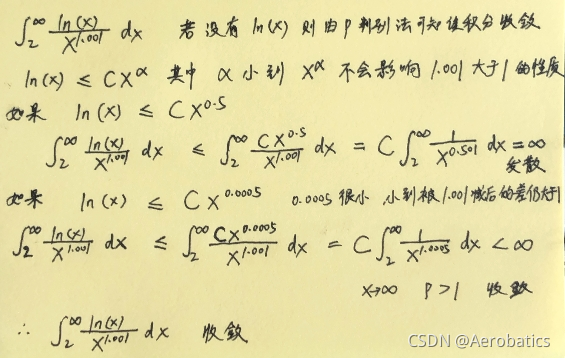 ∫₂^∞ ln(x)/x^1.001 dx 若没有 ln(x) 则由 P 判别法可知该积分收敛
ln(x) ≤ Cx^α 其中 α 小到 x^α 不会影响 1.001 大于 1 的性质
如果 ln(x) ≤ Cx^0.5
∫₂^∞ ln(x)/x^1.001 dx ≤ ∫₂^∞ Cx^0.5/x^1.001 dx = C∫₂^∞ 1/x^0.501 dx = ∞
发散
如果 ln(x) ≤ Cx^0.0005 0.0005 很小 小到被 1.001 减后的差仍大于1
∫₂^∞ ln(x)/x^1.001 dx ≤ ∫₂^∞ Cx^0.0005/x^1.001 dx = C∫₂^∞ 1/x^1.0005 dx < ∞
x→∞ P>1 收敛
∴ ∫₂^∞ ln(x)/x^1.001 dx 收敛
CSDN @Aerobatics